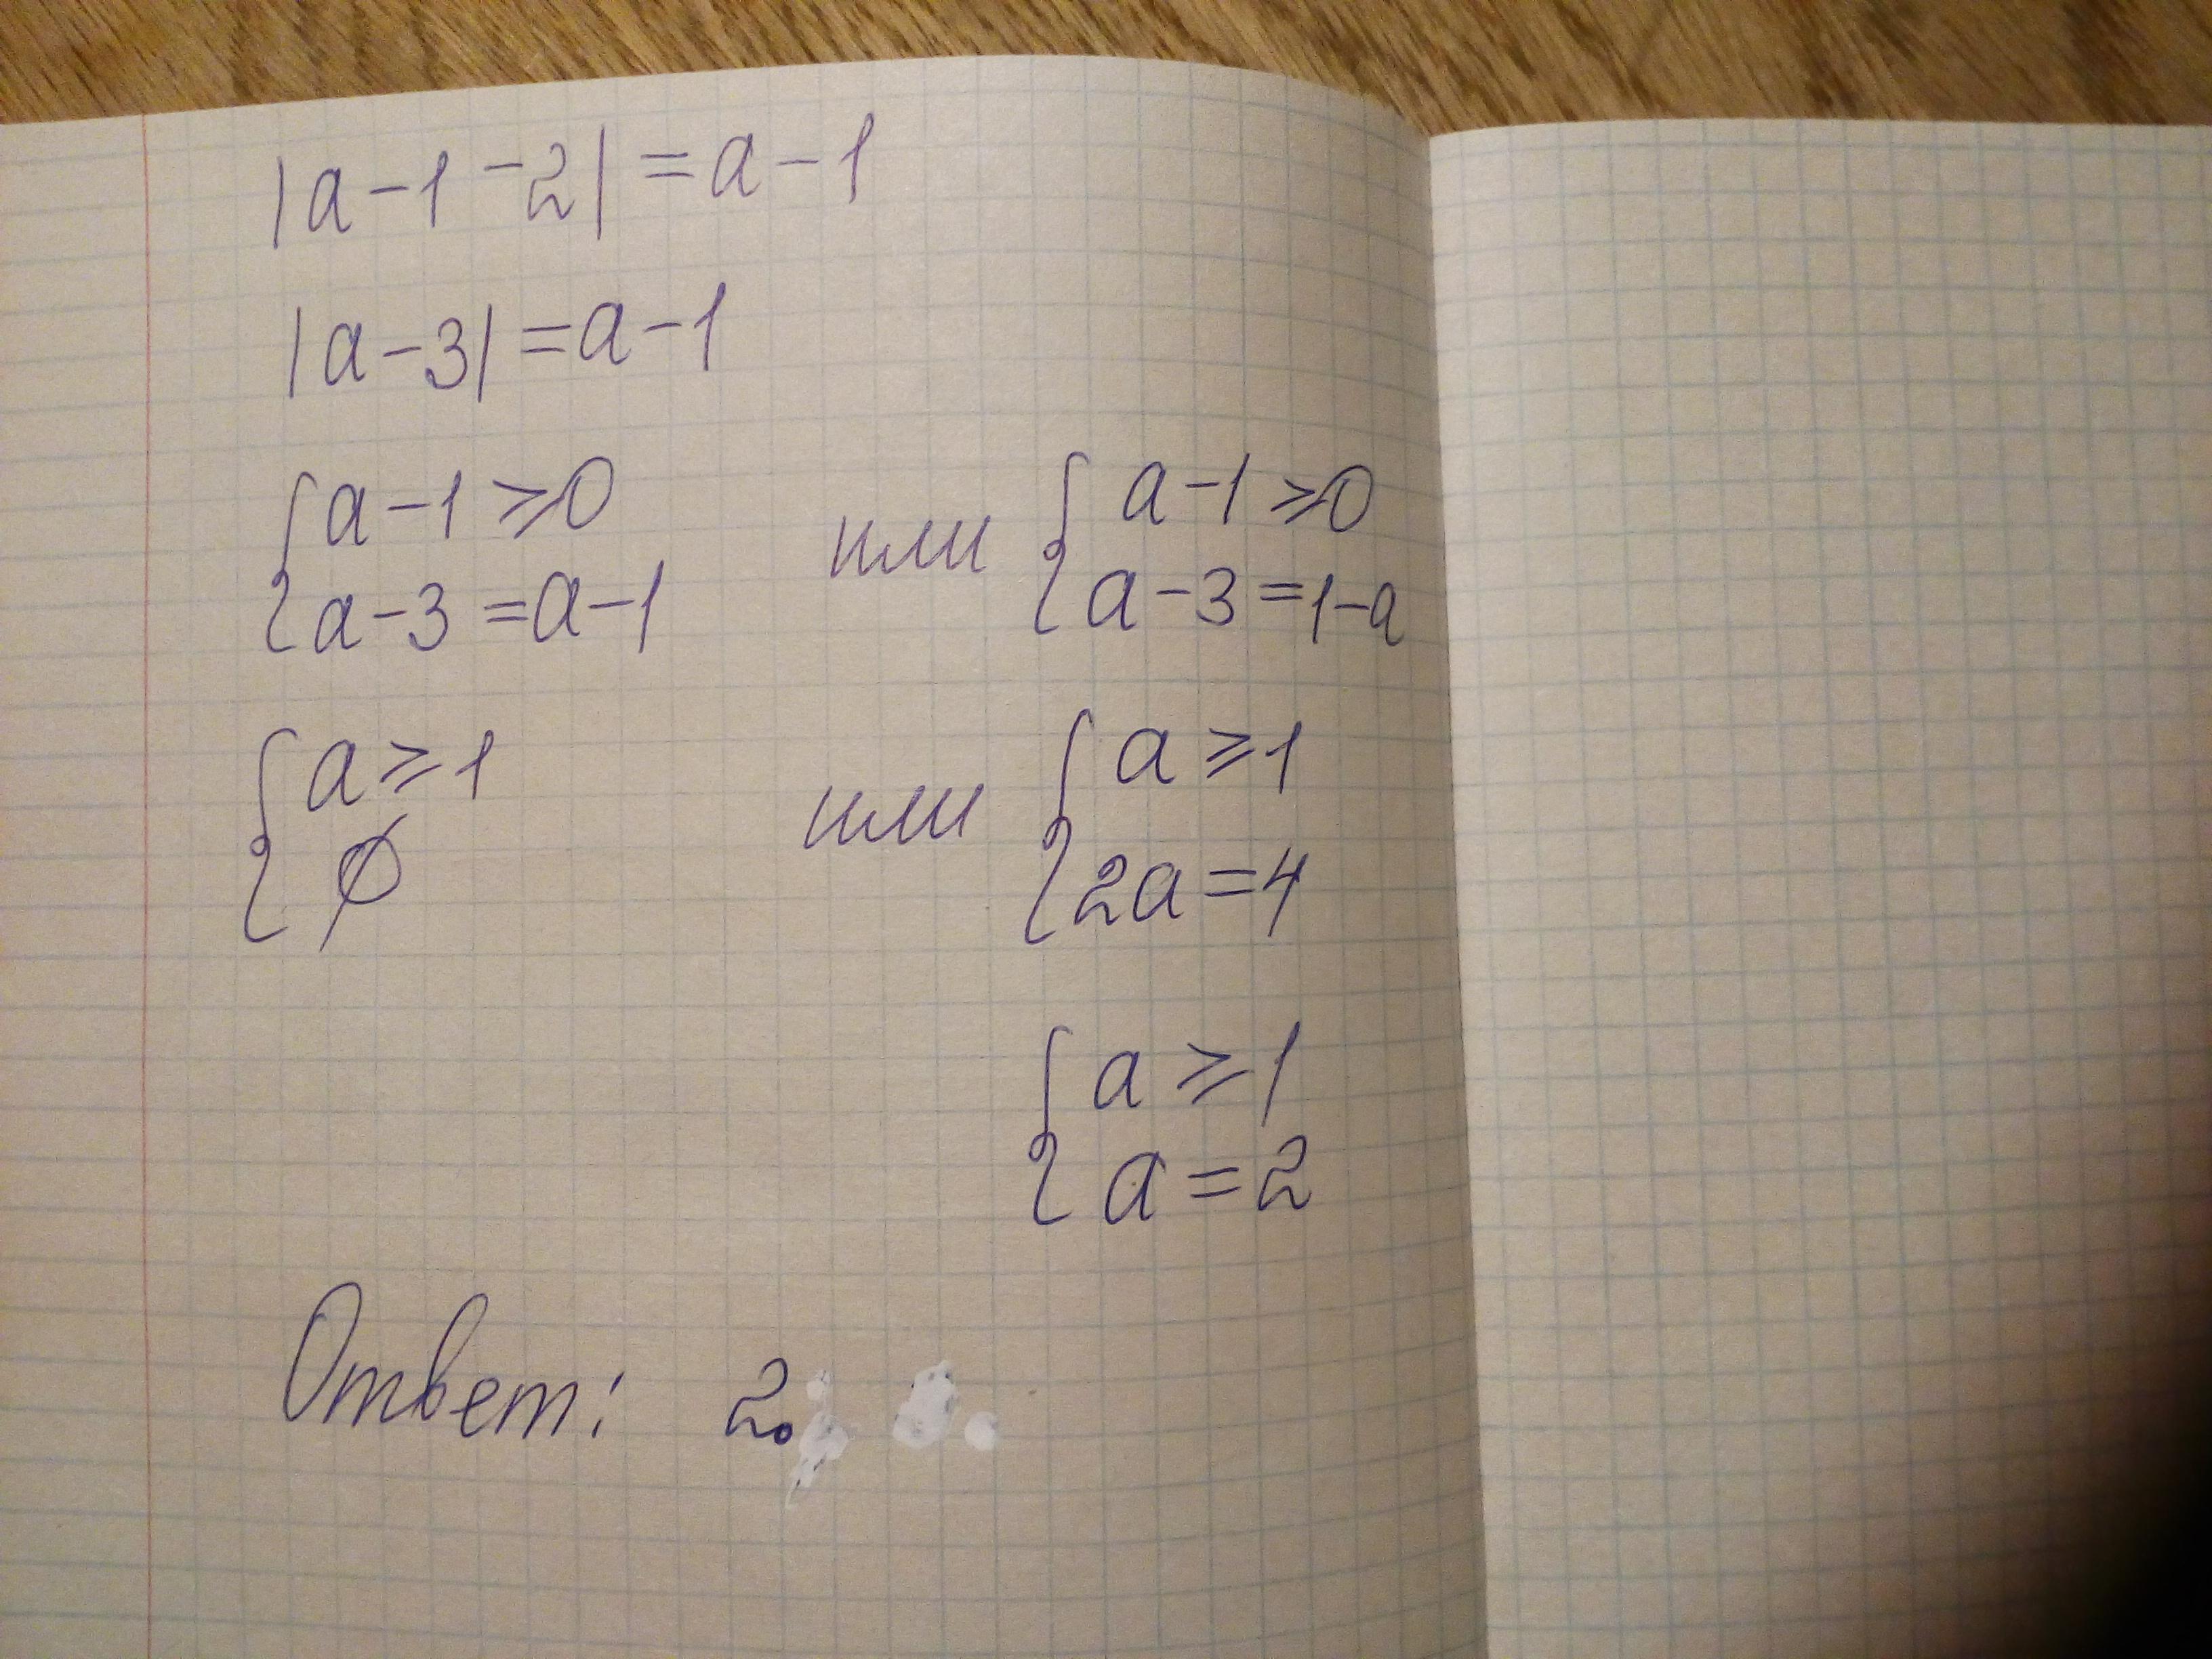 |a-1-2|=a-1
|a-3|=a-1
{a-1⩾0 или {a-1⩾0
{a-3=a-1 {a-3=1-a
{a⩾1 или {a⩾1
{∅ {2a=4
{a⩾1
{a=2
Ответ: 2.